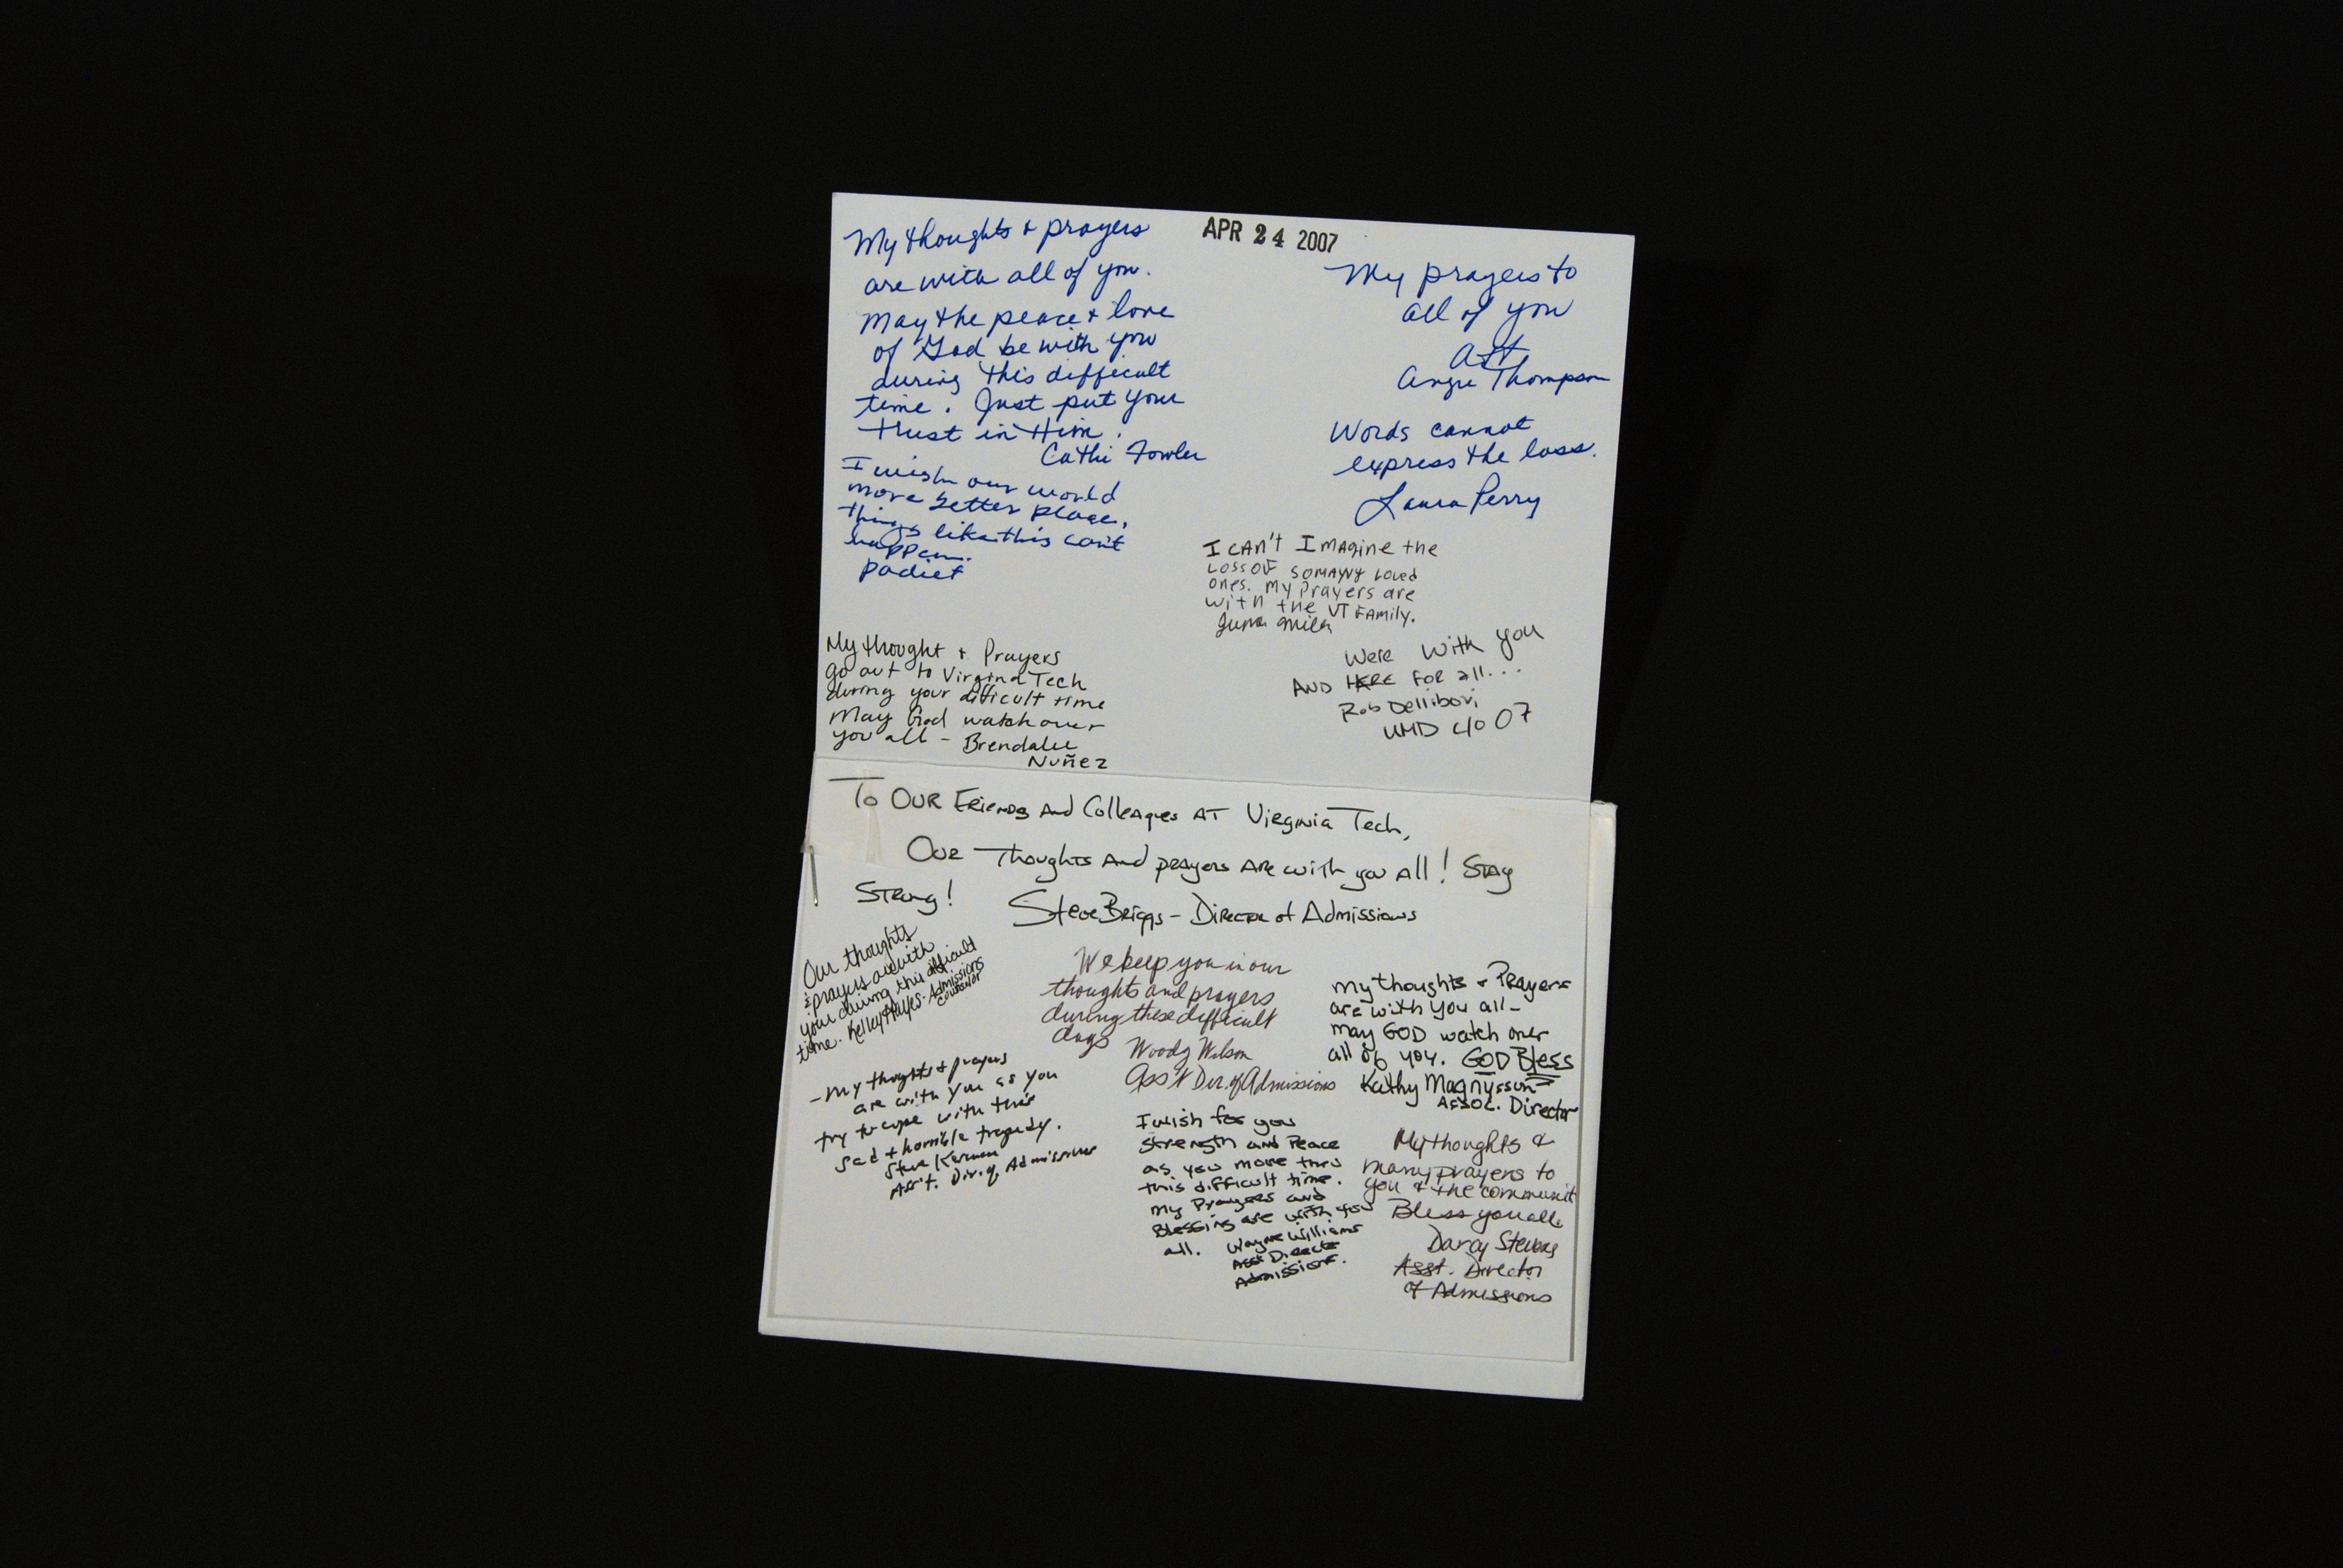 My thoughts & prayers
are with all of you.
May the peace & love
of God be with you
during this difficult
time. Just put your
trust in Him.
Cathi Fowler
I wish our world
more better place,
things like this can't
happen.
APR 24 2007
My prayers to
all of you
Angie Thompson
Words cannot
express the loss.
Laura Perry
I can't Imagine the
Loss of so many loved
ones. My Prayers are
with the VT Family.
My thought & Prayers
go out to Virgina Tech
during your difficult time
May God watch over
you all - Brendalee
Nuñez
Were With you
AND HERE FOR all...
Rob Dellibovi
UMD c/o 07
To Our Friends and Colleagues at Virginia Tech,
Our Thoughts and prayers are with you all! Stay
Strong!
Steve Briggs - Director of Admissions
Our thoughts
& prayers are with
your during this difficult
time. Kelley Hayes - Admissions
Counselor
We keep you in our
thoughts and prayers
during these difficult
days
Woody Wilson
Ass't Dir. of Admissions
My thoughts & Prayers
are with you all -
may GOD watch over
all of you. GOD Bless
Kathy Magnusson
Assoc. Director
- My thoughts & prayers
are with you as you
try to cope with this
sad & horrible tragedy.
Steve
Ass't. Dir. of Admissions
I wish for you
Strength and Peace
as you move thru
this difficult time.
My Prayers and
Blessing are with you
all. Wayne Williams
Asst Director
Admissions.
My thoughts &
many prayers to
you & the communit
Bless you all.
Darcy Stevens
Asst. Director
of Admissions